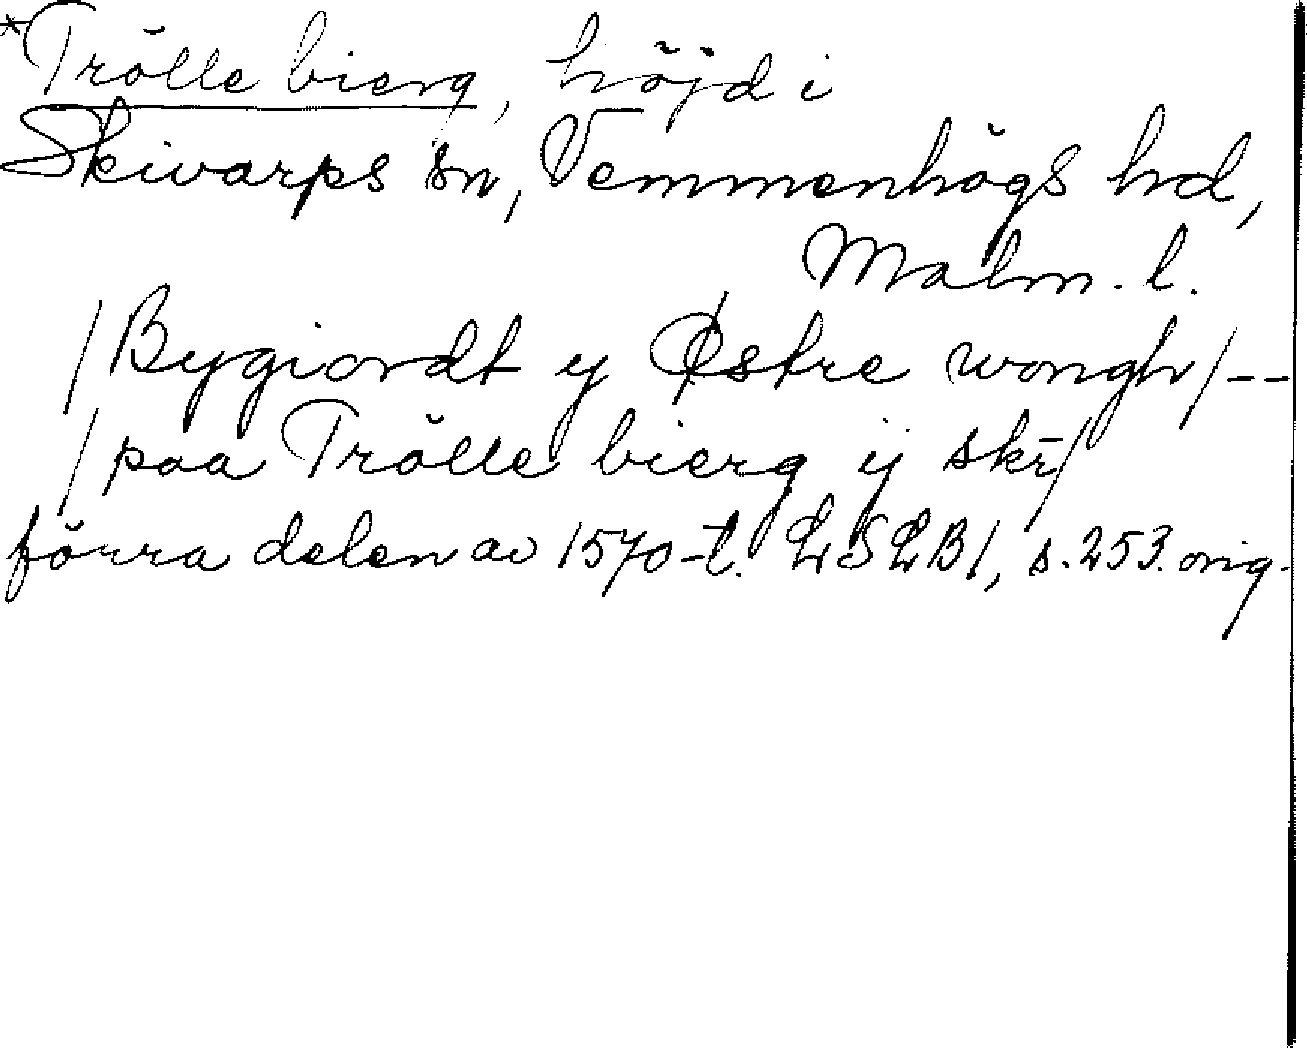 *Trölle bierg, höjd i
Skivarps sn, Vemmenhögs hd,
Malm. l.
/Bygiordt y Østre wongh/--
/paa Trölle bierg ij skr̄/
förra delen av 1570-t. LSLB1, s. 253. orig.